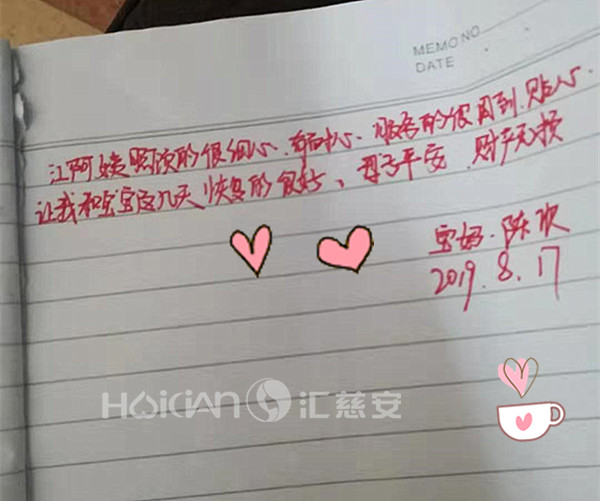 MEMO NO
DATE
江阿姨照顾的很细心、有耐心、服务的很周到.贴心.
让我和宝宝这几天恢复的良好、母子平安、财产无损
宝妈.陈欢
2019.8.17
HOiCiAN 汇慈安